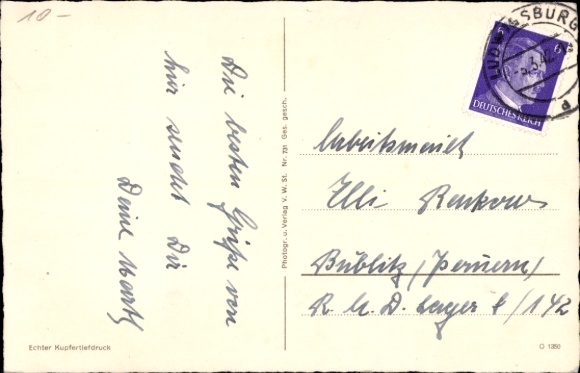 10-
Die besten Grüße von
hier sendet Dir
Deine
LUDWIGSBURG
-5.3.42
6 6
DEUTSCHES REICH
Photogr. u. Verlag V. W. St. Nr. 721 Ges. gesch.
Arbeitsmaid
Elli
Bublitz / Pomern /
R. A. D. Lager 6 / 142
Echter Kupfertiefdruck
O 1350